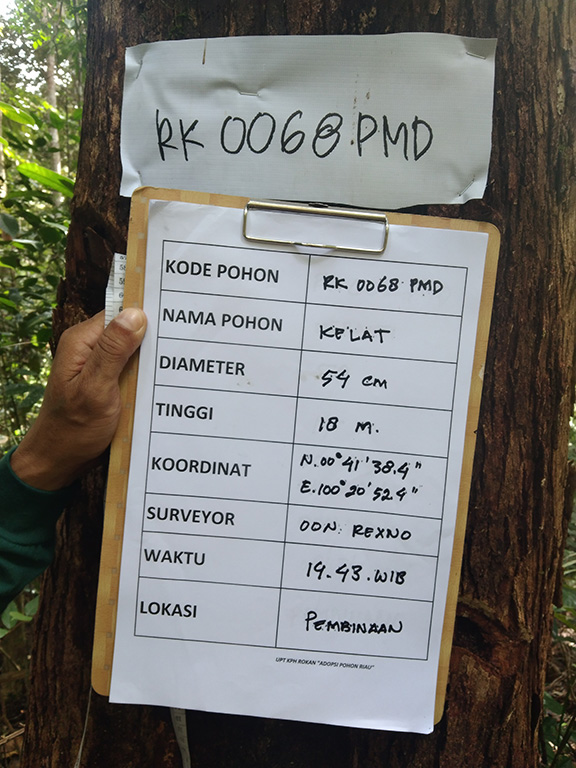 RK 0068.PMD
KODE POHON RK 0068 PMD
NAMA POHON KELAT
DIAMETER 54 CM
TINGGI 18 M.
KOORDINAT N.00°41'38.4"
E.100°20'52.4"
SURVEYOR OON. REXNO
WAKTU 14.43.WIB
LOKASI PEMBINAAN
UPT KPH ROKAN "ADOPSI POHON RIAU"